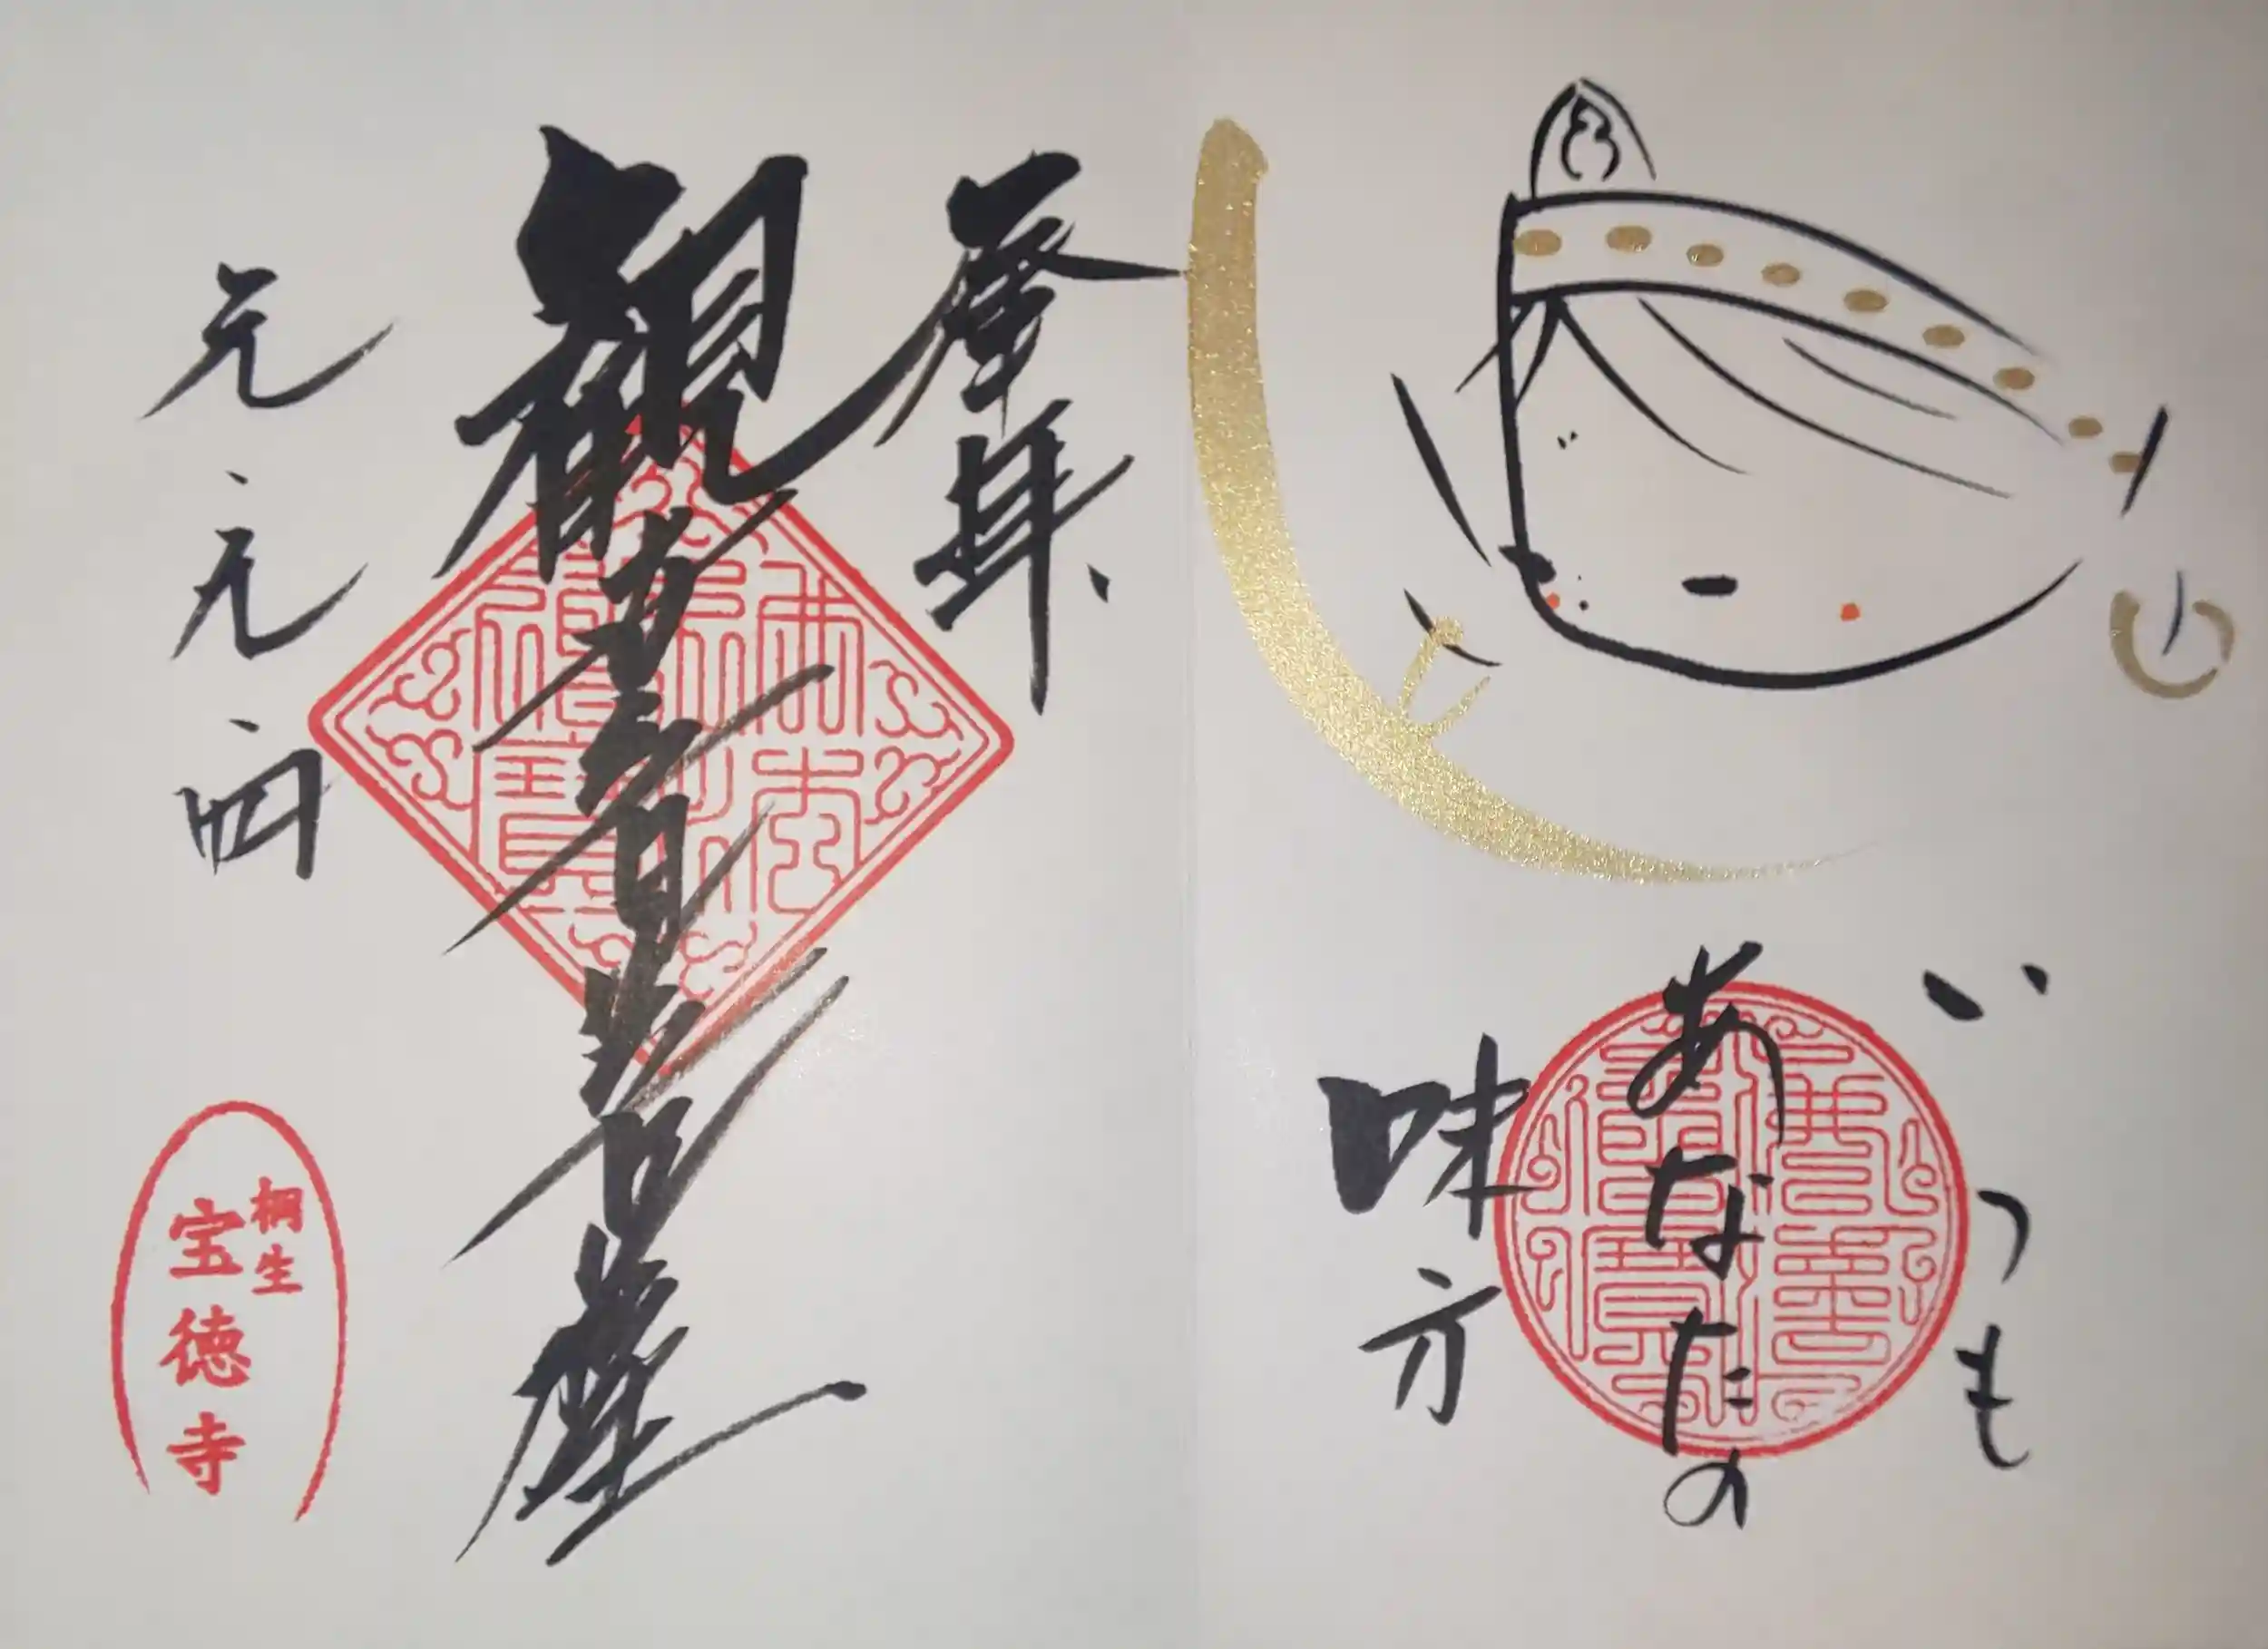 いつも
あなたの
味方
拝
観世音菩薩
元、元、四
桐生
宝徳寺